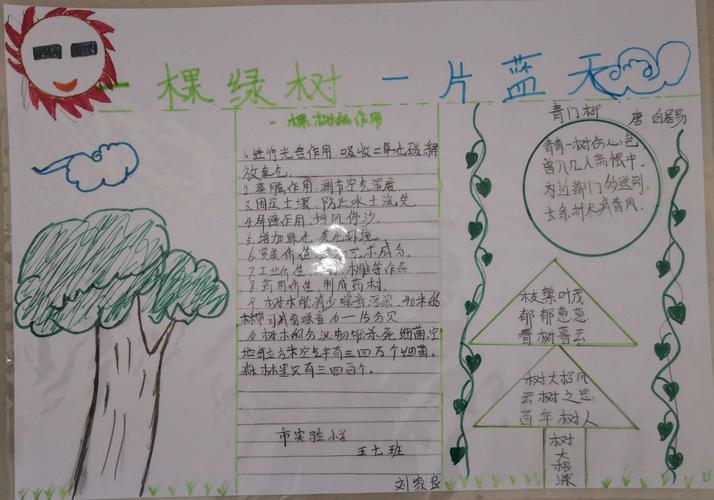 一棵绿树 一片蓝天
一棵树的作用
1.进行光合作用,吸收二氧化碳释
放氧气。
2.蒸腾作用,调节空气湿度
3.固定土壤,防止水土流失
4.屏障作用,挡风停沙。
5.增加绿化,美化环境。
6.
7.工业价值
8.药用价值,制成药材。
9.树木能减少噪音污染,40米的
林带可减弱噪音10—15分贝
10.树木的分泌物能杀死细菌,空
地每立方米空气中有三四万个细菌。
森林里只有三四百个。
市实验小学
五七班
青门柳
唐 白居易
青青一树伤心色
曾入几人离恨中。
为近都门多送别
长条折尽减春风。
枝繁叶茂
郁郁葱葱
树大招风
云树之思
百年树人
树
大
根
深